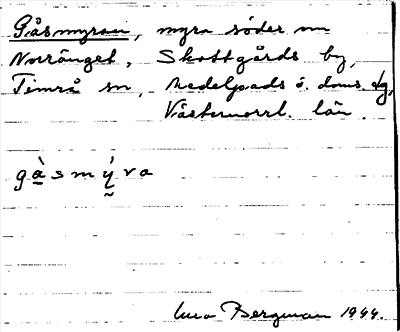 Gåsmyran, myra söder om
Norränget, Skottgårds by,
Timrå sn, Medelpads ö. doms. dg,
Västernorrl. län.
gà̱smý̰ra
Bergman 1944.